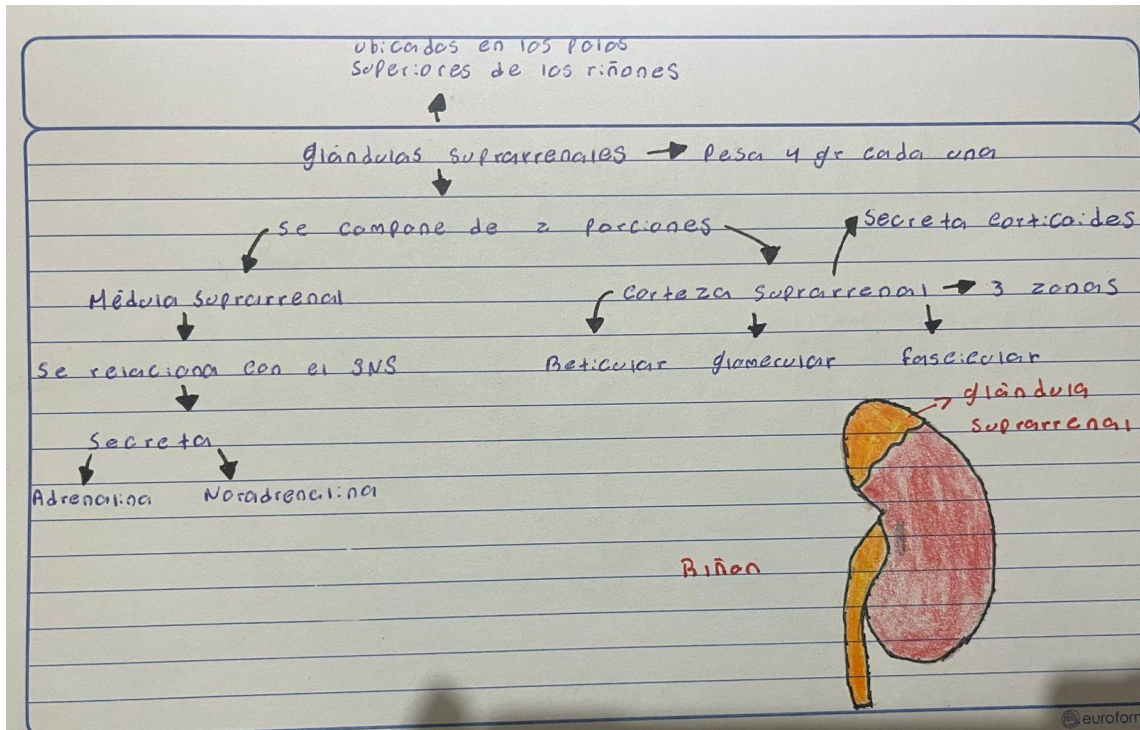 ubicados en los polos
superiores de los riñones
glándulas suprarrenales → Pesa 4 gr cada una
se compone de 2 porciones
secreta corticoides
Médula suprarrenal
corteza suprarrenal → 3 zonas
se relaciona con el SNS
Reticular glomerular fascicular
glándula
suprarrenal
secreta
Adrenalina Noradrenalina
Riñon
euroform